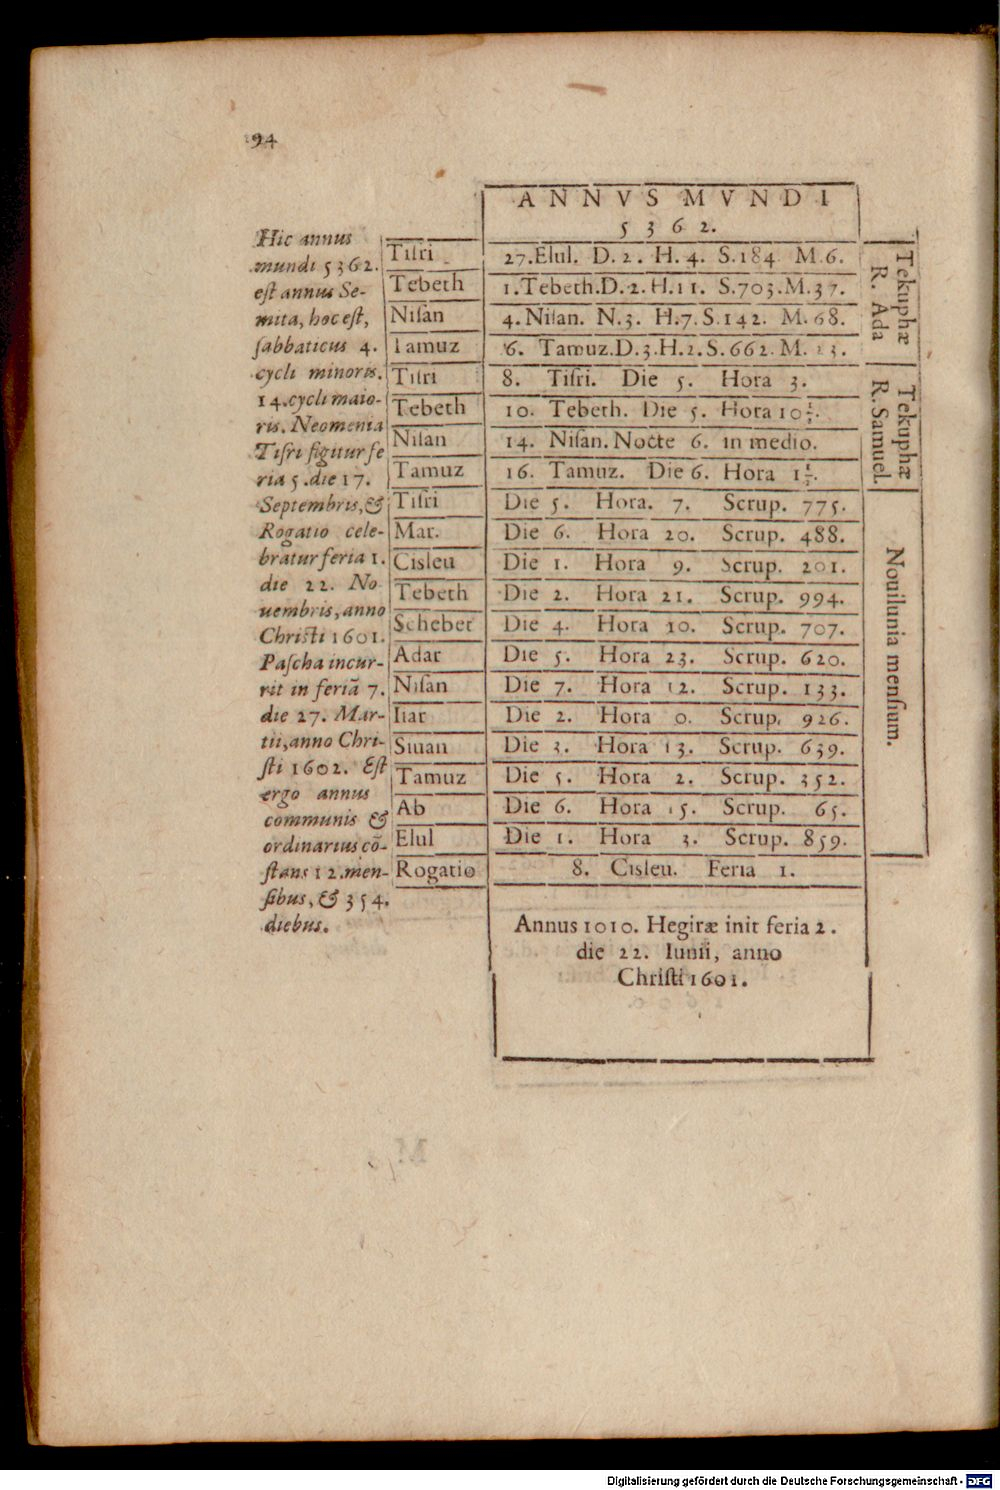 94
ANNVS MVNDI
5362.
Hic annus
mundi 5362.
est annus Se-
mita, hoc est,
ſabbaticus 4.
cycli minoris.
14.cycli maio-
ris. Neomenia
Tiſri figitur fe
ria 5.die 17.
Septembris,&
Rogatio cele-
bratur feria 1.
die 22. No
uembris, anno
Christi 1601.
Paſcha incur-
rit in feriā 7.
die 27. Mar-
tii,anno Chri-
sti 1602. Est
ergo annus
communis &
ordinarius cō-
ſtans 12.men-
ſibus, & 354.
diebus.
Tiſri 27.Elul. D.2. H.4. S.184 M.6.
Tebeth 1.Tebeth.D.2.H.11. S.703.M.37.
Niſan 4.Niſan. N.3. H.7.S.142. M.68.
Tamuz 6. Tamuz.D.3.H.2.S.662.M. 23.
Tiſri 8. Tiſri. Die 5. Hora 3.
Tebeth 10. Tebeth. Die 5. Hora 10½.
Niſan 14. Niſan. Nocte 6. in medio.
Tamuz 16. Tamuz. Die 6. Hora 1½.
Tiſri Die 5. Hora. 7. Scrup. 775.
Mar. Die 6. Hora 20. Scrup. 488.
Cisleu Die 1. Hora 9. Scrup. 201.
Tebeth Die 2. Hora 21. Scrup. 994.
Schebet Die 4. Hora 10. Scrup. 707.
Adar Die 5. Hora 23. Scrup. 620.
Niſan Die 7. Hora 12. Scrup. 133.
Iiar Die 2. Hora 0. Scrup. 926.
Siuan Die 3. Hora 13. Scrup. 639.
Tamuz Die 5. Hora 2. Scrup. 352.
Ab Die 6. Hora 15. Scrup. 65.
Elul Die 1. Hora 3. Scrup. 859.
Rogatio 8. Cisleu. Feria 1.
Tekuphæ
R. Ada
Tekuphæ
R.Samuel.
Nouilunia menſium.
Annus 1010. Hegiræ init feria 2.
die 22. Iunii, anno
Chriſti 1601.
Digitalisierung gefördert durch die Deutsche Forschungsgemeinschaft - DFG